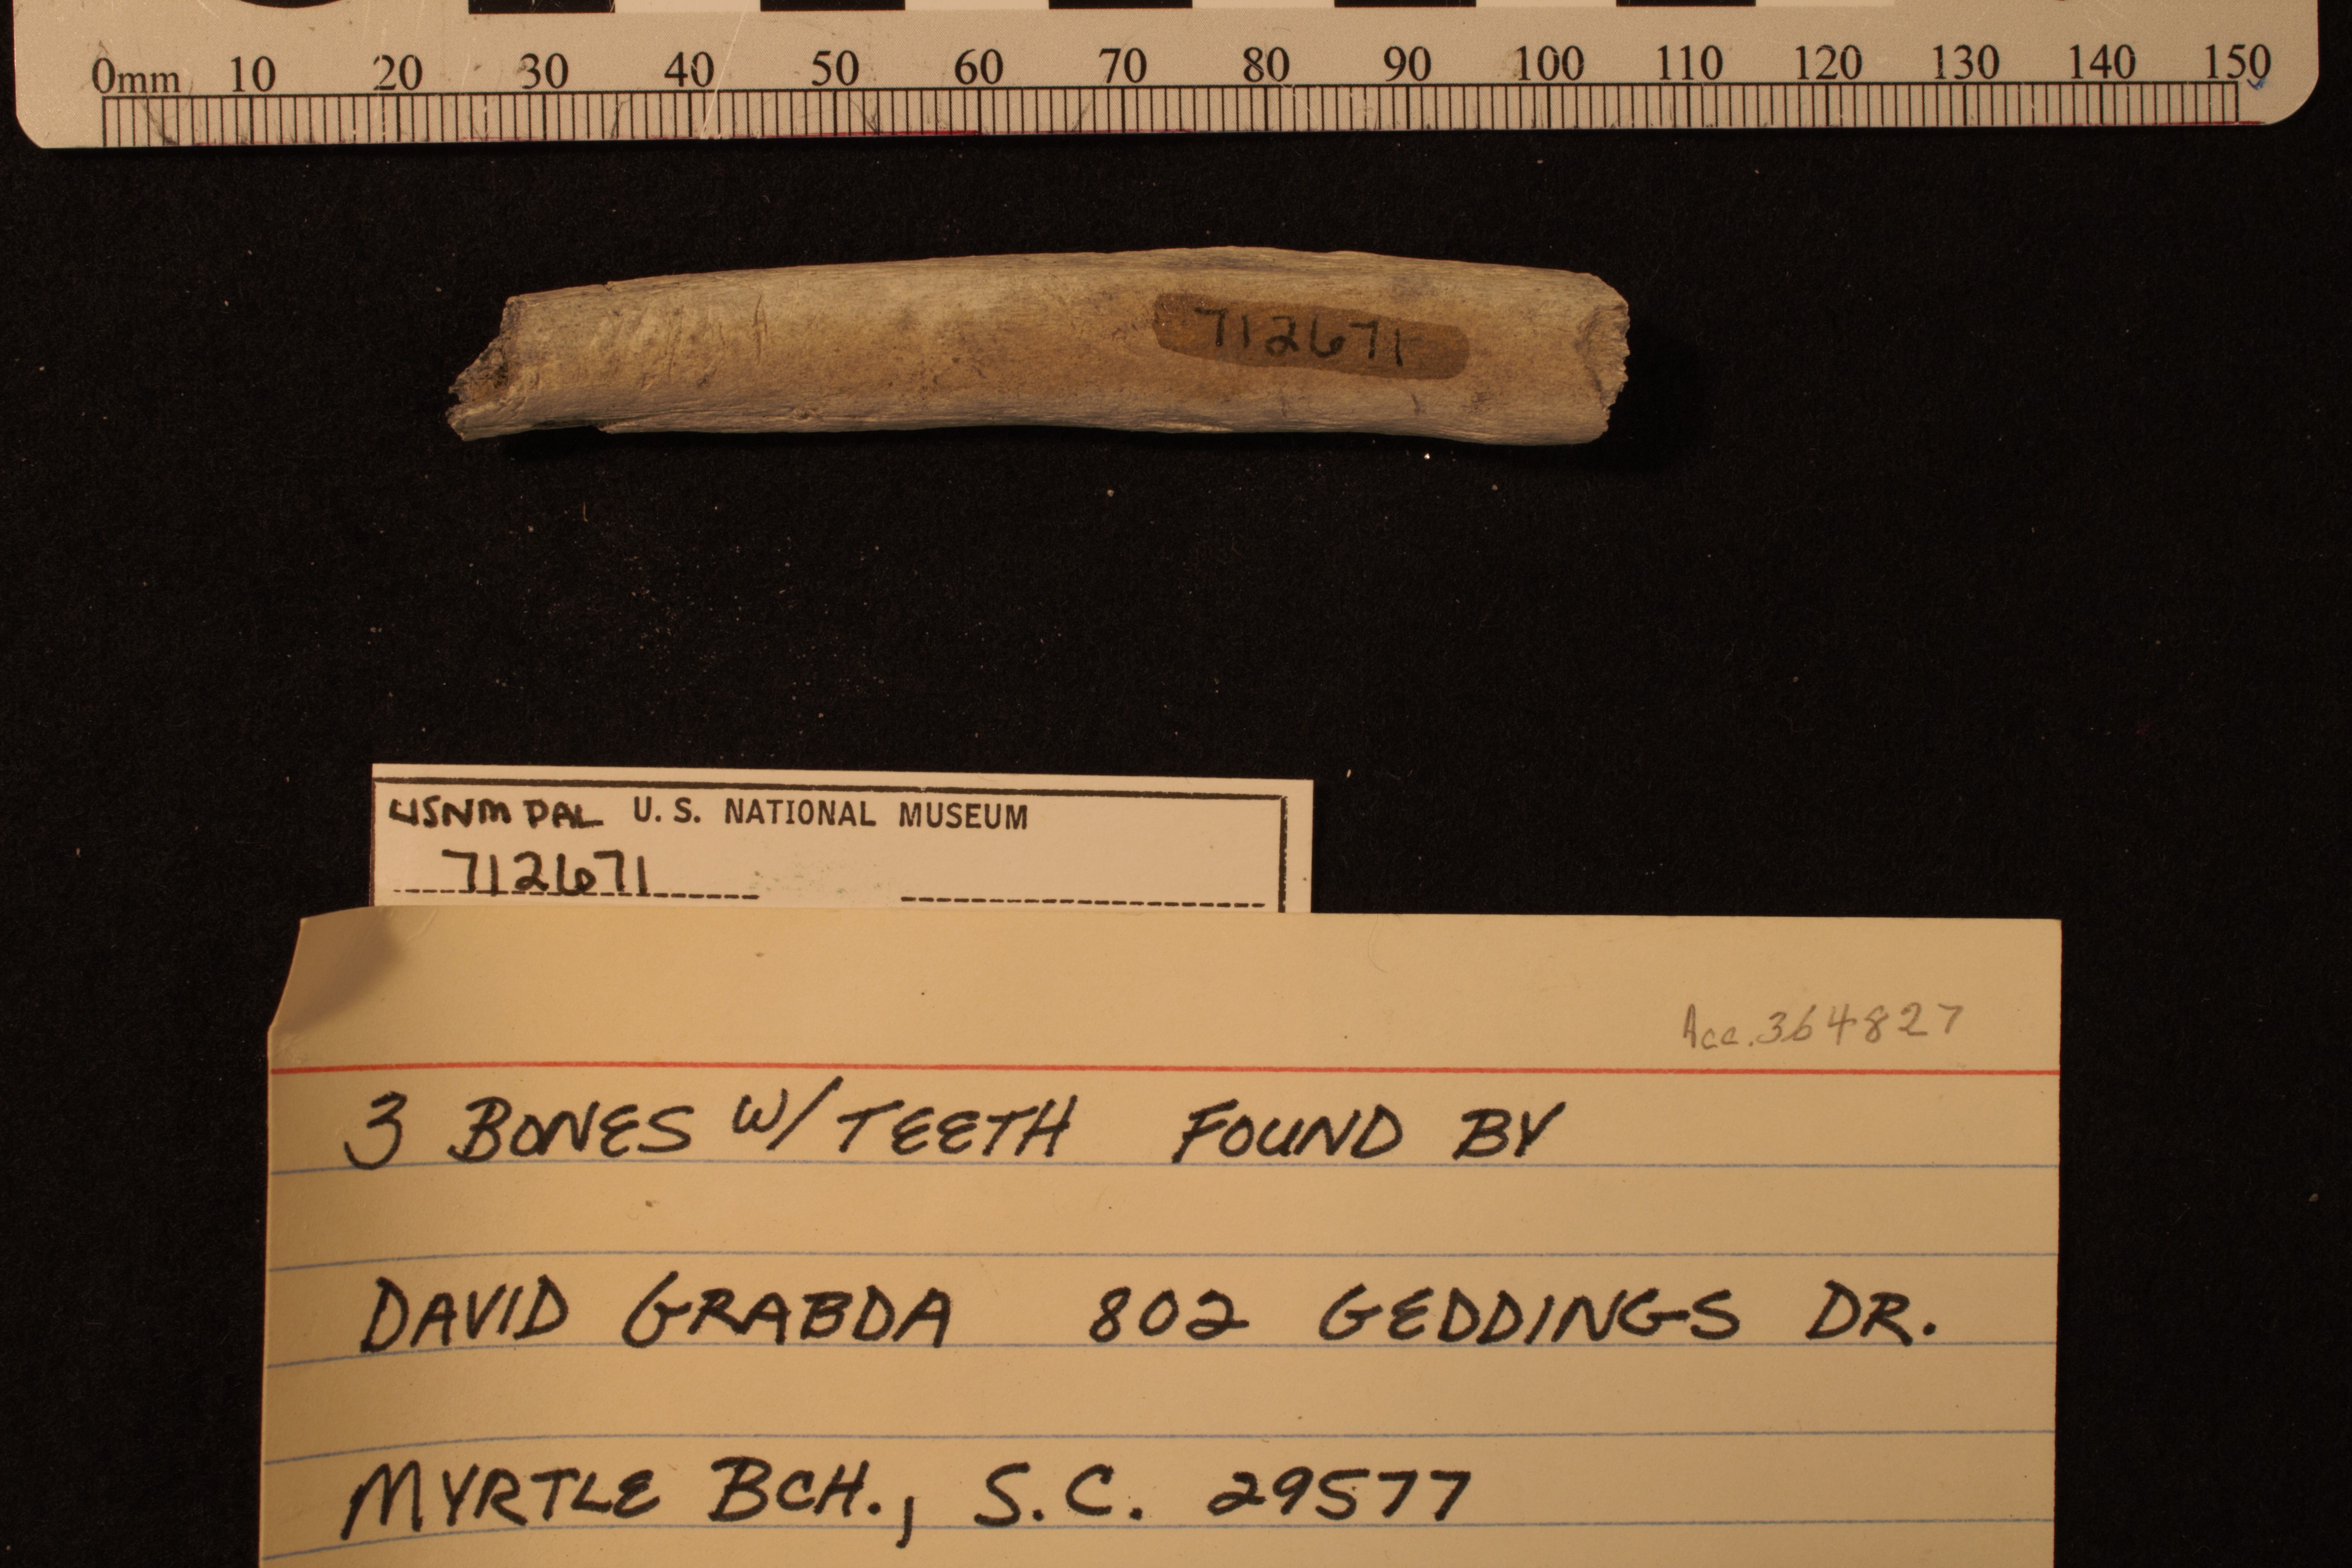 0mm 10 20 30 40 50 60 70 80 90 100 110 120 130 140 150
712671
USNM PAL U. S. NATIONAL MUSEUM
712671
Acc. 364827
3 BONES W/ TEETH FOUND BY
DAVID GRABDA 802 GEDDINGS DR.
MYRTLE BCH., S.C. 29577